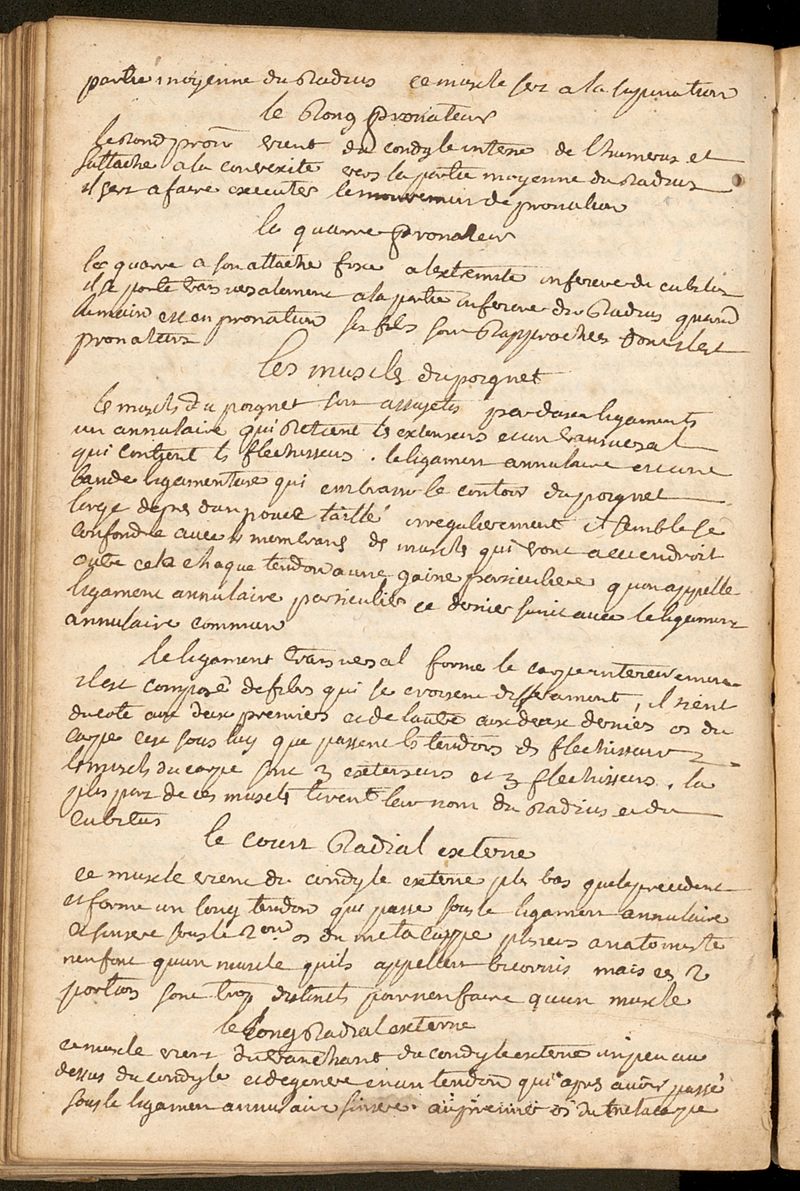 partie moyenne du Radius ce muscle sert a la supination
le Rong pronateur
le Rond pron vient du condyle interne de l'humerus et
sattache a la convexité vers la partie moyenne du Radius
il sert a faire executer le mouvemen de pronation
le quarre pronateur
le quarre a son attache fixe a lextremité inferieure du cubitus
il se porte transversalement a la partie inferieure du Radius quand
la main est en pronation ses fibs sont Rapprochées donc il est
pronateur
les muscles du poignet
les muscls du poignet sont assujetis par deux ligaments
un annulaire qui Retient ls extenseurs et un transversal
qui contient ls flechisseurs . le ligament annulaire est une
bande ligamenteuse qui embrasse le contour du poignet
large depres dun pouce taillé irregulierement il semble se
confondre avec ls membrans ds muscls qui vont a cet endroit
outre cela chaque tendon a une gaine particuliere quon appelle
ligament annulaire particulier ce dernier sunit avec le ligament
annulaire commun
le ligament transversal forme le carpe interieurement
il est composé de fibrs qui se croisent differament , il tient
du coté aux deux premiers et de lautre aux deux derniers os du
carpe cest sous luy que passent ls tendons ds flechisseurs
ls muscls du carpe sont 3 extenseurs et 3 flechisseurs . la
plus part de ces muscls tirent leur nom du Radius et du
cubitus
le court Radial externe
ce muscle vient du condyle externe pls bas que le precedent
et forme un long tendon qui passe sous le ligament annulaire
et sinsere sous le 2 ond os du metacarpe plsieurs anatomiste
nen font quun muscle quils appellent bicornis mais ces 2
portions sont trop distincts pour nen faire quun muscle
le Long Radial externe
ce muscle vient du tranchant du condyle externe un peu au
dessus du condyle et degenere en un tendon qui apres avoir passé
sous le ligamen annulaire sinsere au premier os du metacarpe